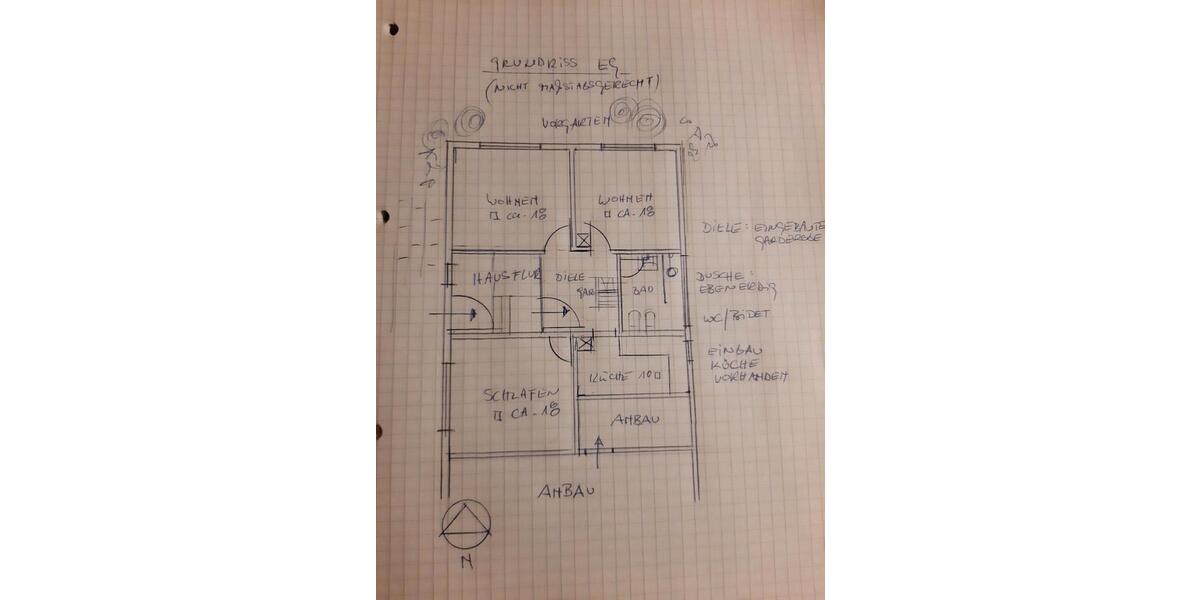 GRUNDRISS EG
(NICHT MAßSTABSGERECHT)
VORGARTEN
WOHNEN
□ CA. 18
WOHNEN
□ CA. 18
DIELE: EINGEBAUTE
GARDEROBE
HAUSFLUR
DIELE
GAR
BAD
DUSCHE:
EBENERDIG
WC/BIDET
EINBAU
KÜCHE
VORHANDEN
KÜCHE 10□
SCHLAFEN
□ CA. 18
ANBAU
ANBAU
N